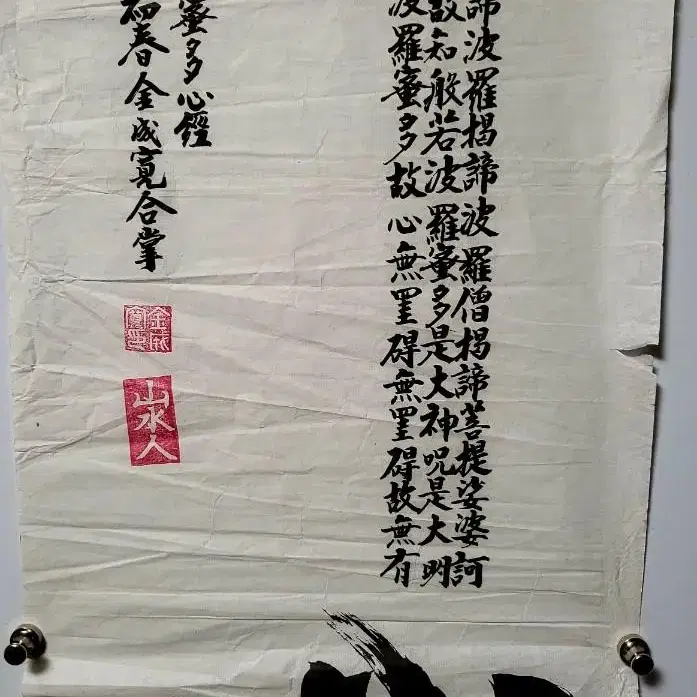 諦波羅揭諦波羅僧揭諦菩提娑婆訶
故知般若波羅蜜多是大神呪是大明
波羅蜜多故心無罣碍無罣碍故無有
蜜多心經
初春金成寛合掌
山水人